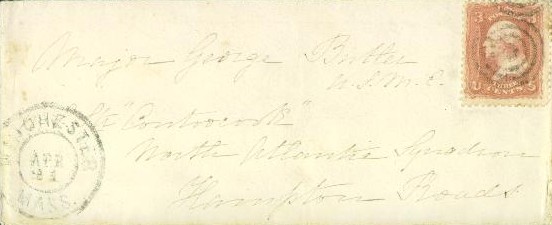 Major George Butler
U.S.M.C.
"Contoocook"
North Atlantic Squadron
Hampton Roads
3 3
THREE
CENTS
APR
21
MASS.